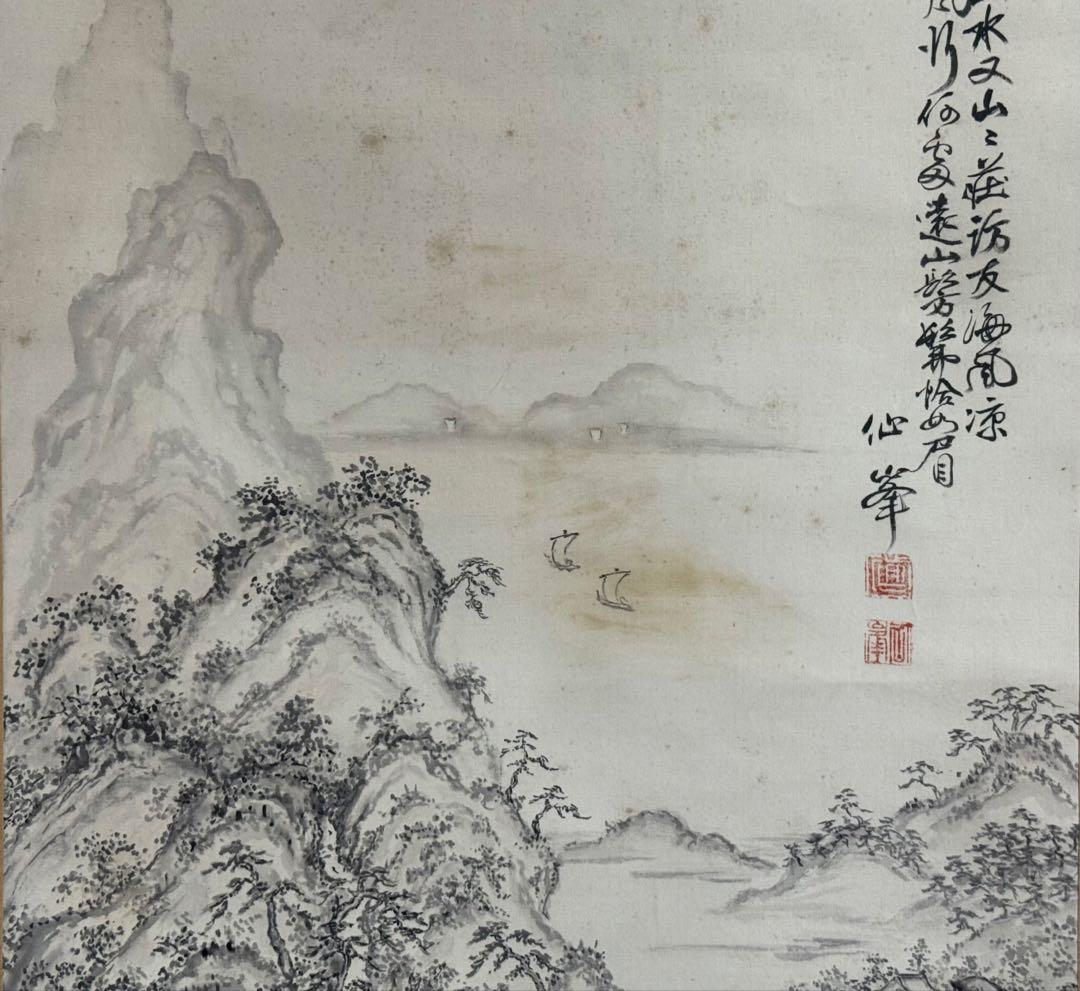 水又山〻莊訪友海風涼
何處遠山髣髴恰如眉
仙峯
仙峯